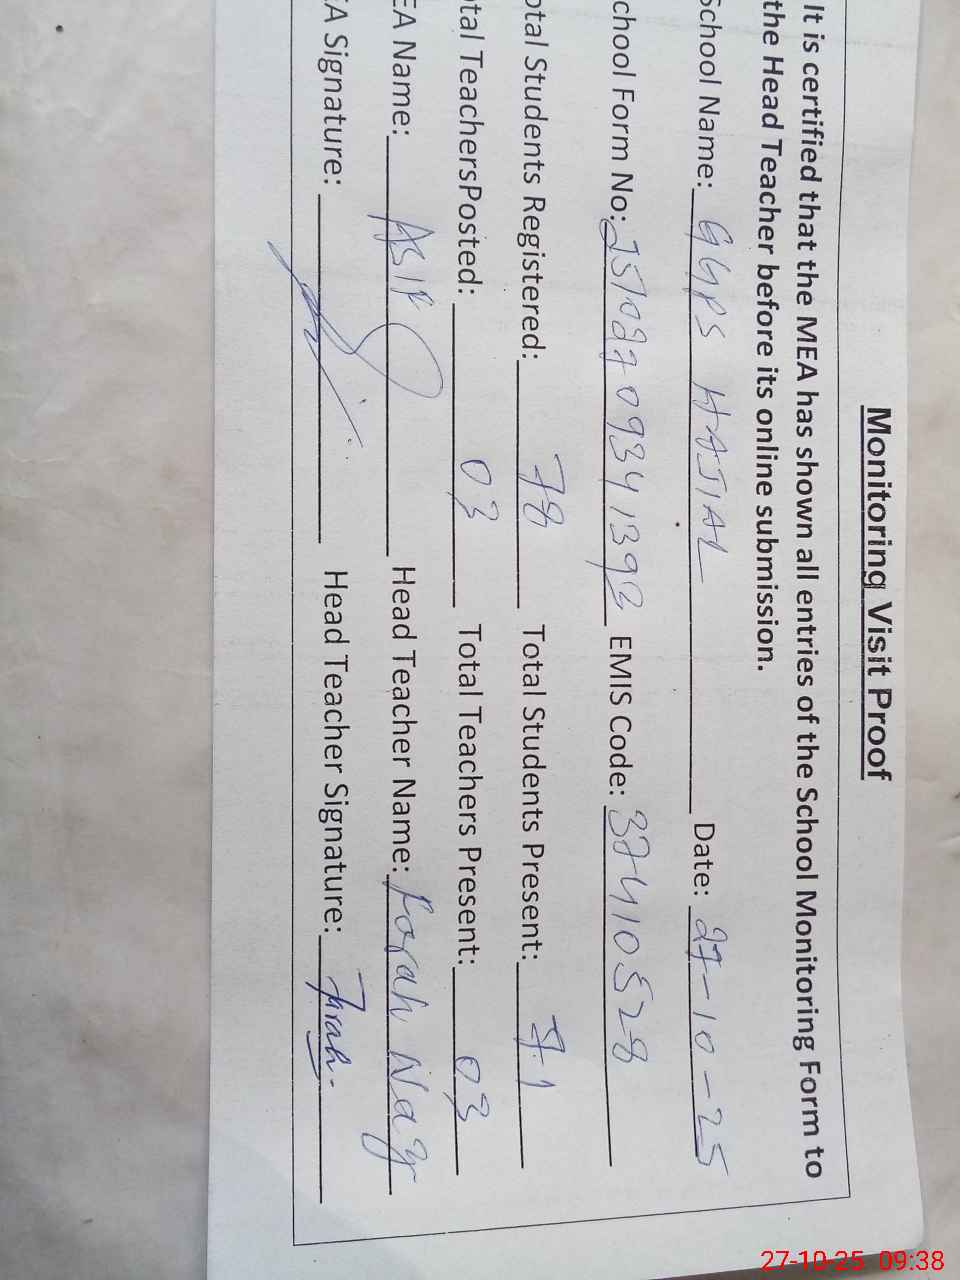 Monitoring Visit Proof
It is certified that the MEA has shown all entries of the School Monitoring Form to
the Head Teacher before its online submission.
School Name: GGPS HAJIAL Date: 27-10-25
chool Form No: 25102709341392 EMIS Code: 37410528
otal Students Registered: 78 Total Students Present: 71
otal TeachersPosted: 03 Total Teachers Present: 03
EA Name: ASIF Head Teacher Name: Farah Naz
EA Signature: Head Teacher Signature: Farah
27-10-25 09:38